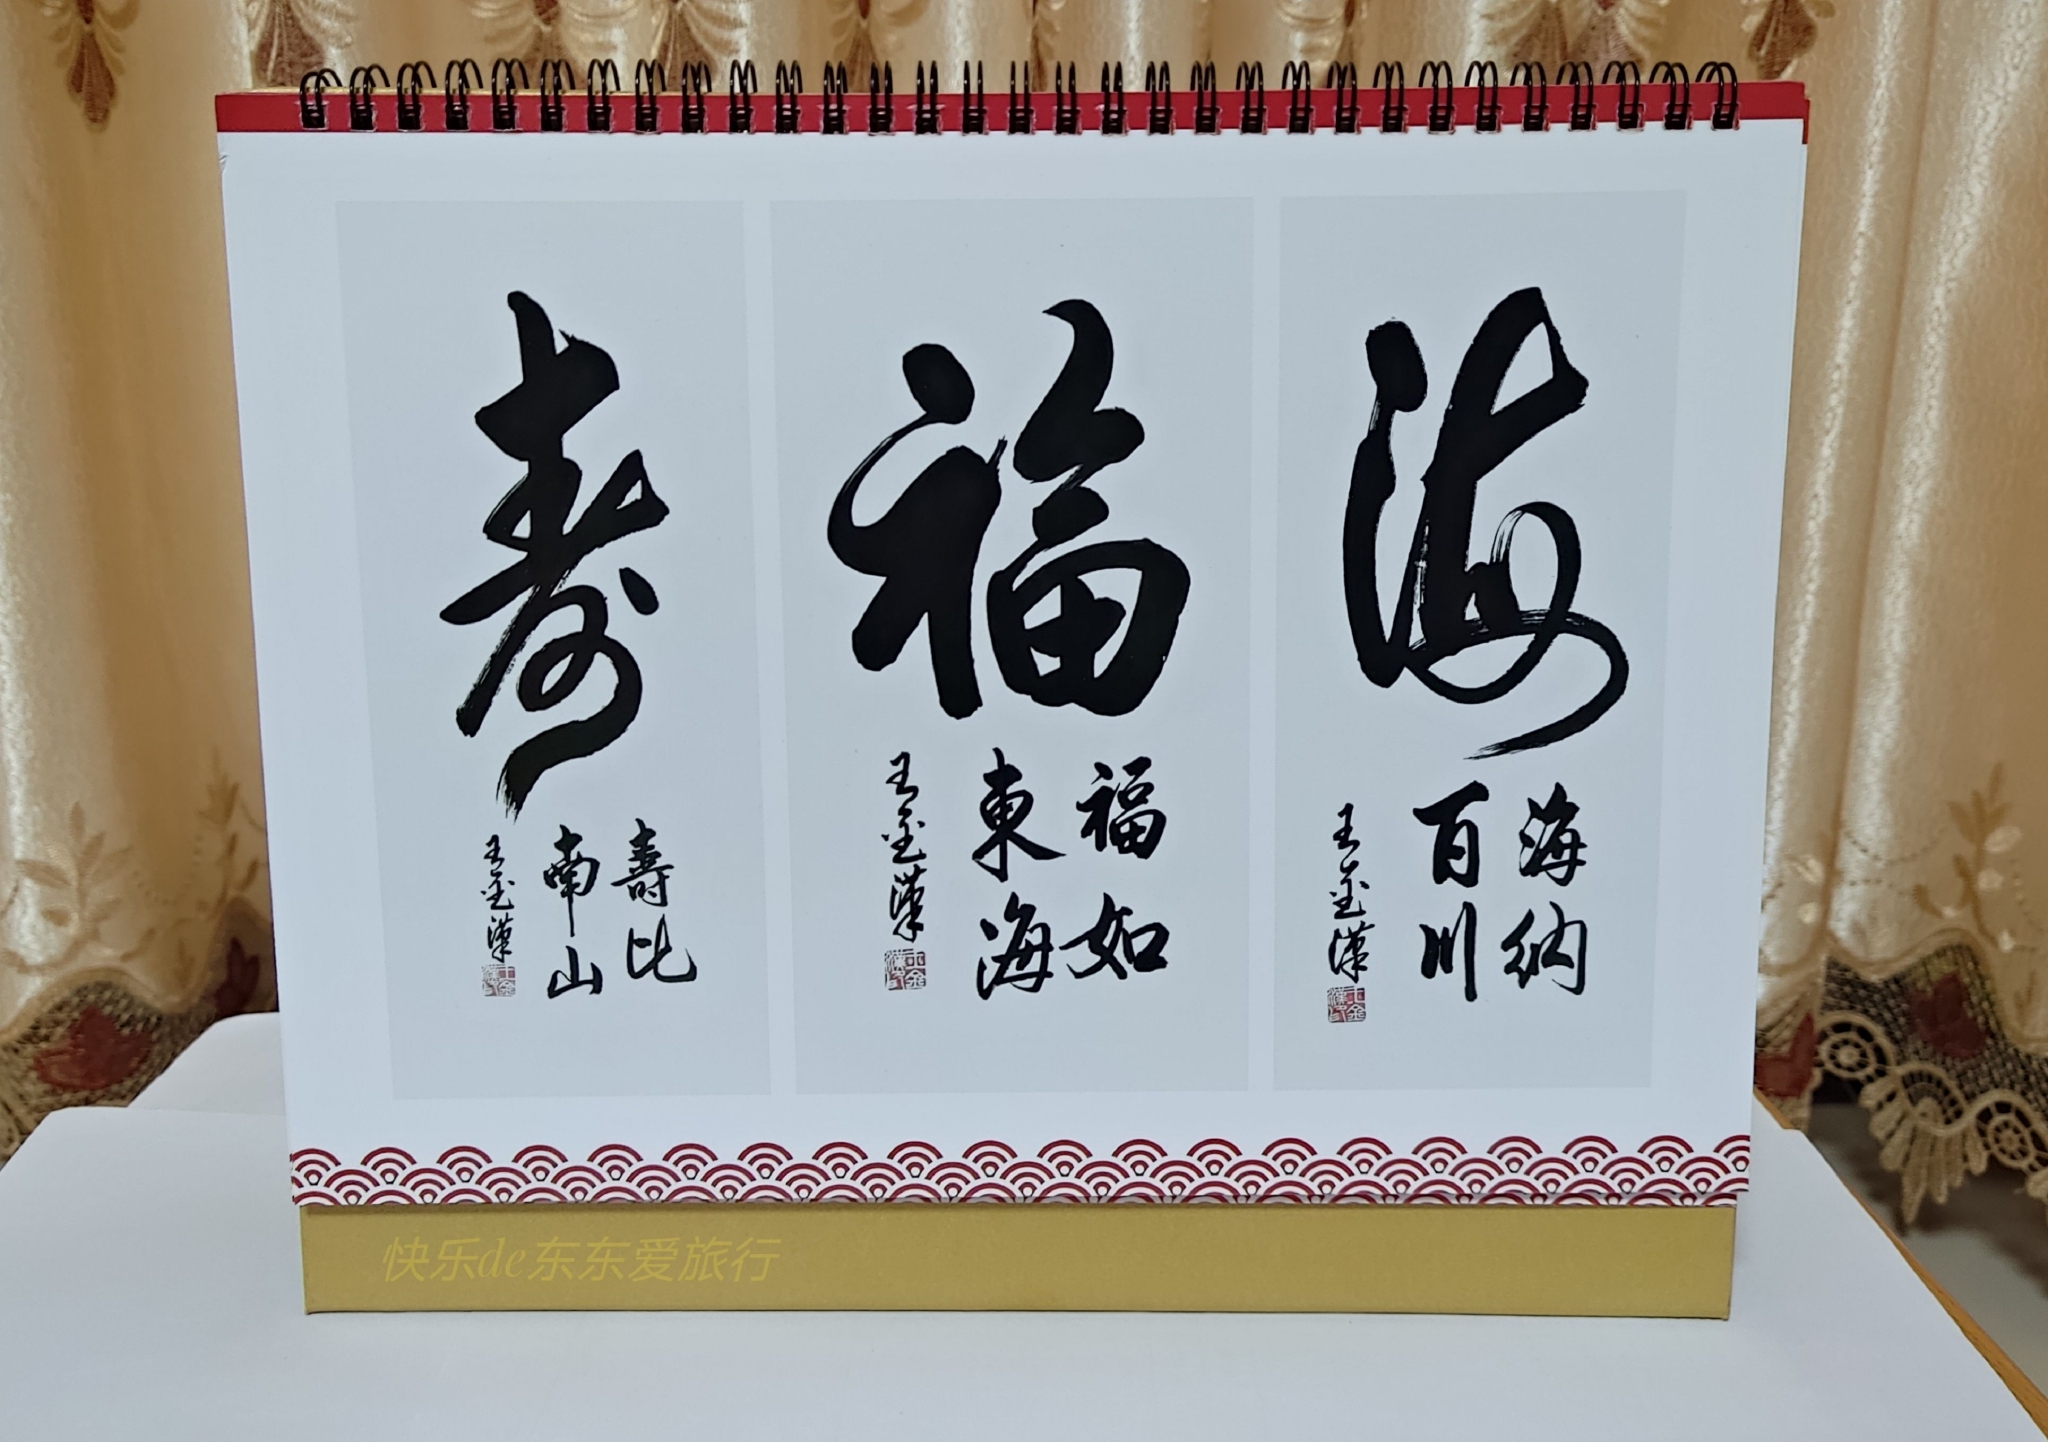 海
海納
百川
王金漢
福
福如
東海
王金漢
壽
壽比
南山
王金漢
快乐de东东爱旅行